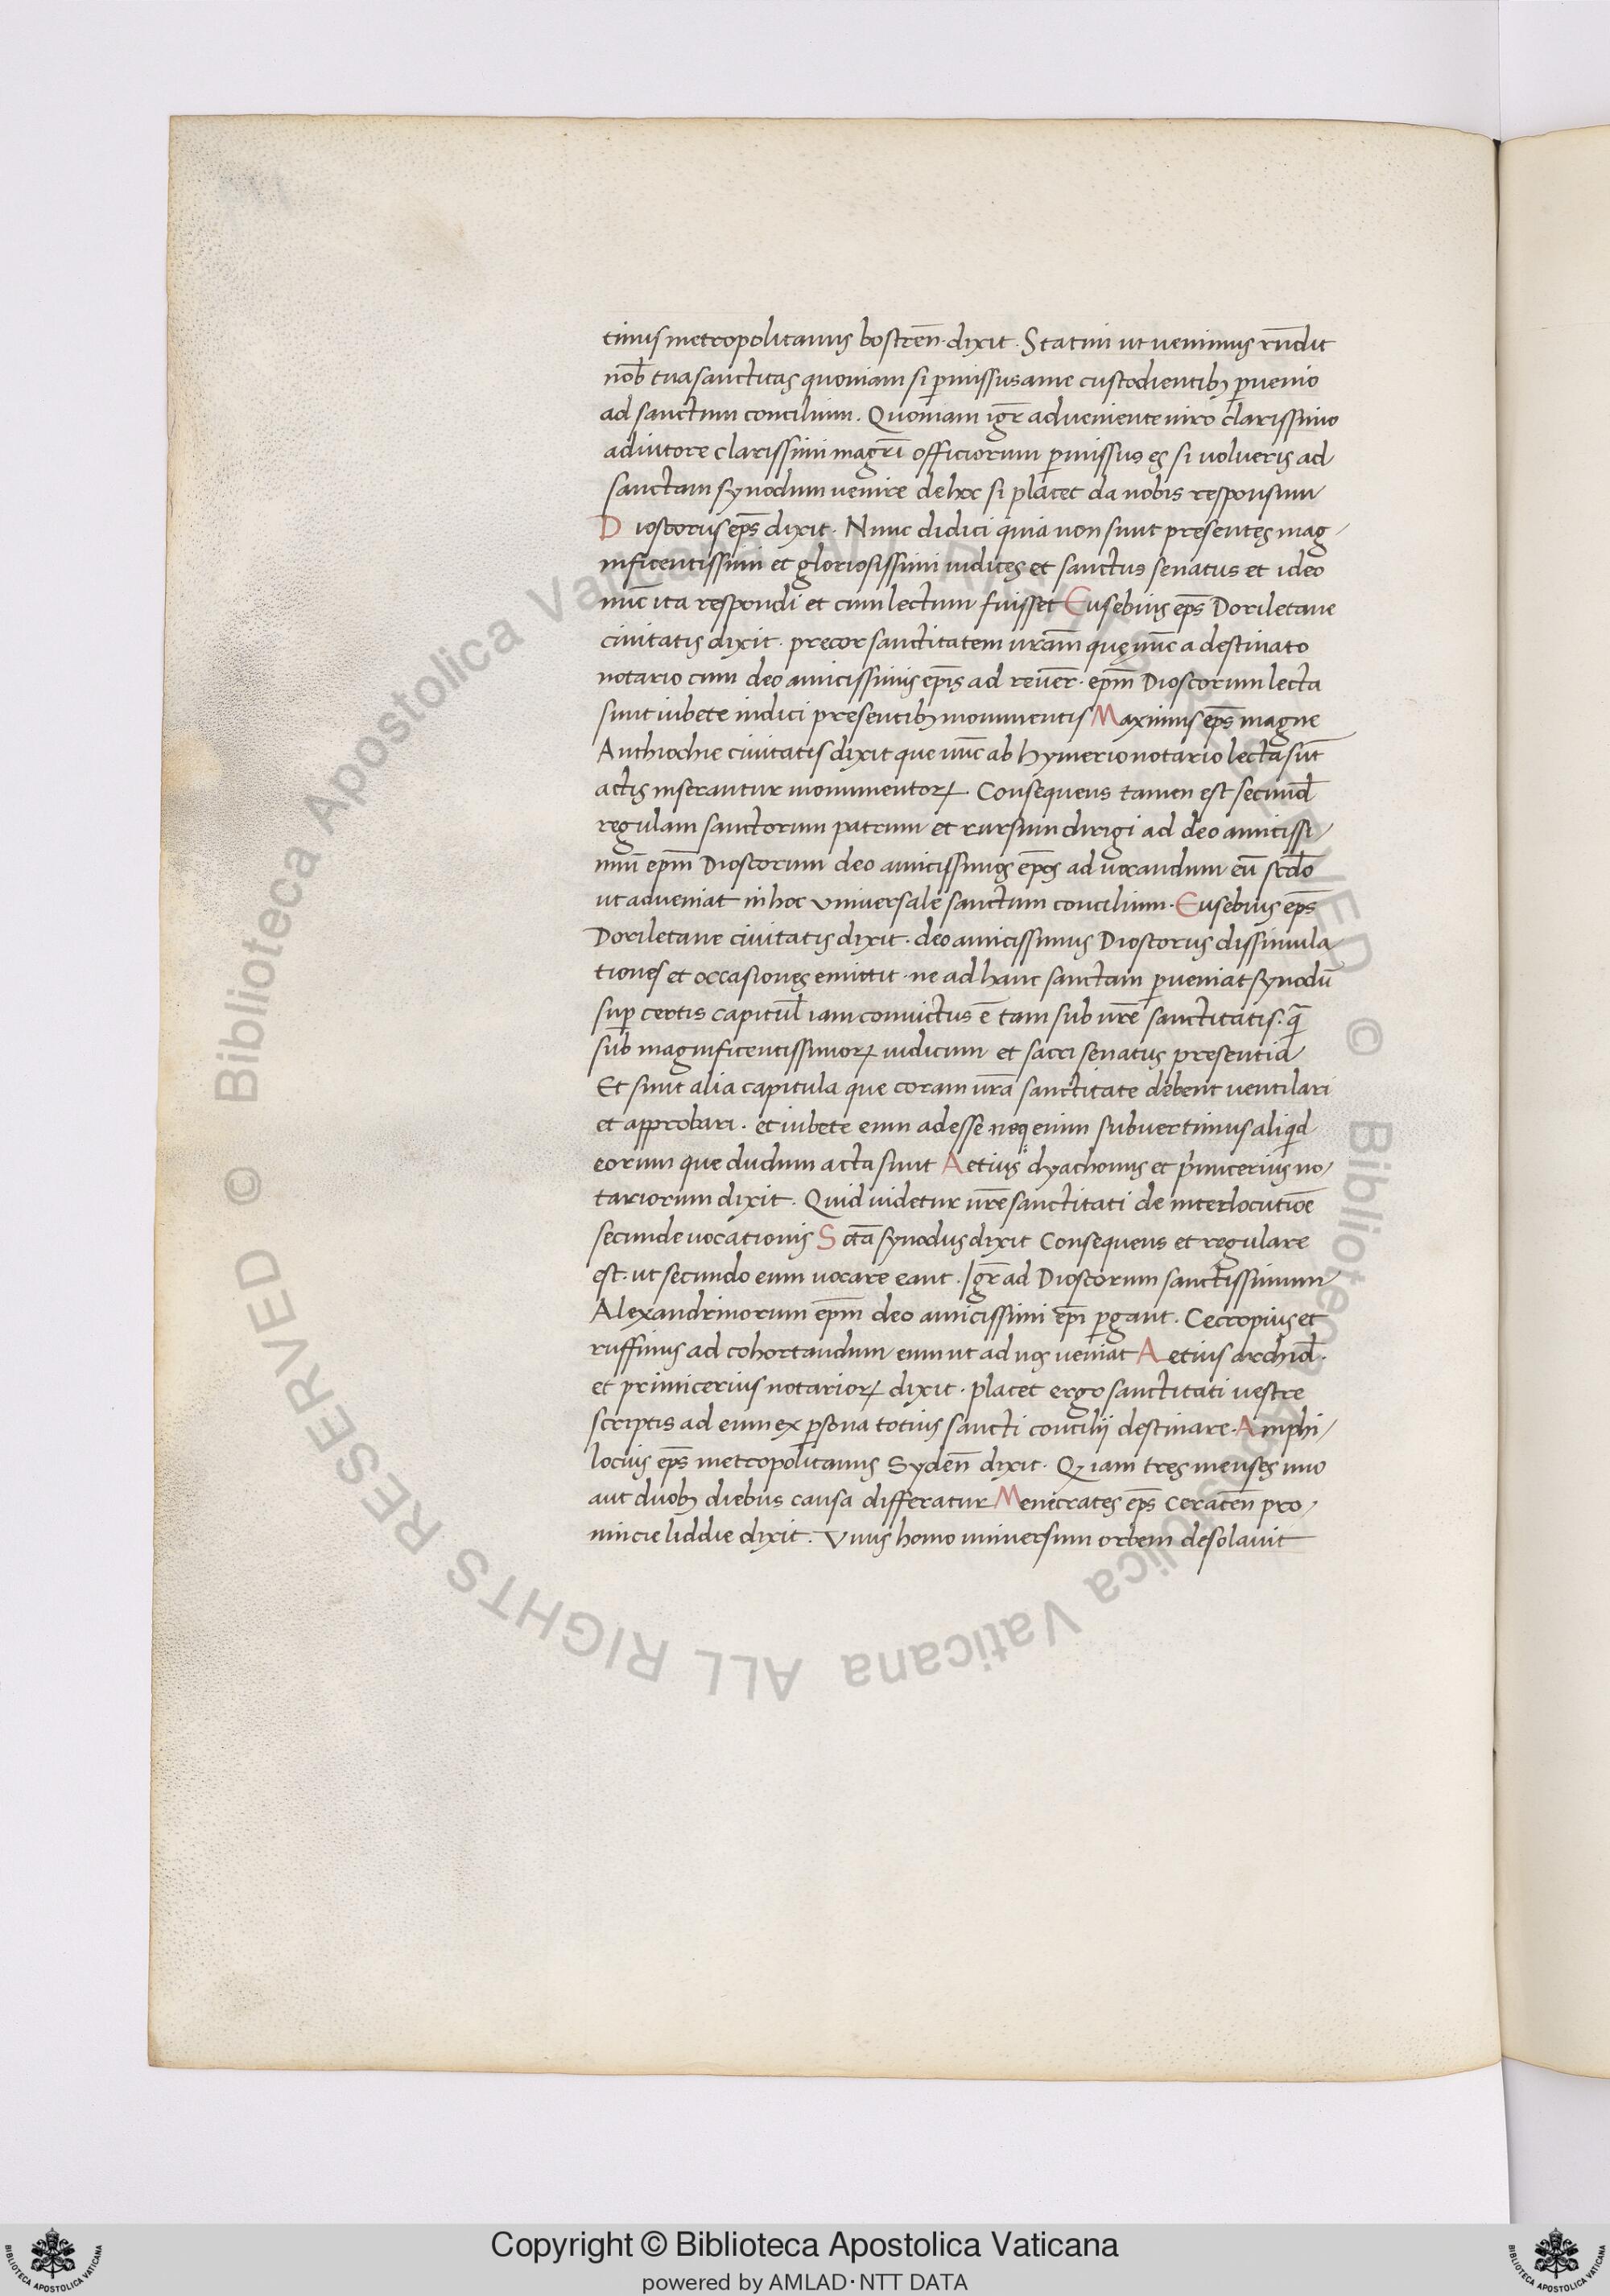 tinus metropolitanus bostreñ. dixit. Statim ut venimus rñdit
nob̄ tua sanctitas quoniam si p̱missus a me custodientibꝫ p̱venio
ad sanctum concilium. Quoniam igr̄ adveniente viro clarissimo
adiutore clarissimi magr̄i officiorum p̱missus es si volueris ad
sanctam synodum venire de hoc si placet da nobis responsum
Dioscorus ep̄s dixit. Nunc didici quia non sunt presentes mag
nificentissimi et gloriosissimi iudices et sanctus senatus et ideo
nūc ita respondi et cum lectum fuisset Eusebius ep̄s Doriletane
civitatis dixit. precor sanctitatem vr̄am que nūc a destinato
notario cum deo amicissimis ep̄is ad rever̄. ep̄m Dioscorum lecta
sunt iubete indici presentibꝫ monumentis Maximus ep̄s magne
Anthiochie civitatis dixit que nūc ab hymerio notario lecta sūt
actis inserantur monumentoꝝ. Consequens tamen est secund̄
regulam sanctorum patrum et rursum dirigi ad deo amicissi
mū ep̄m Dioscorum deo amicissimos ep̄os ad vocandum eū scd̄o
ut adveniat in hoc universale sanctum concilium. Eusebius ep̄s
Doriletane civitatis dixit. deo amicissimus Dioscorus dissimula
tiones et occasiones emittit. ne ad hanc sanctam p̱veniat synodū
sup̱ certis capitul̄ iam convictus ē tam sub vr̄e sanctitatis. q̄
sub magnificentissimoꝝ iudicum et sacri senatus presentia
Et sunt alia capitula que coram vr̄a sanctitate debent ventilari
et approbari. et iubete eum adesse neqꝫ enim subvertimus aliqid
eorum que dudum acta sunt Aetius dyachonus et pimicerius no
tariorum dixit. Quid videtur vr̄e sanctitati de interlocutiōe
secunde vocationis Sctā synodus dixit Consequens et regulare
est. ut secundo eum vocare eant. Igr̄ ad Dioscorum sanctissimum
Alexandrinorum ep̄m deo amicissimi ep̄i p̱gant. Cecropius et
ruffinus ad cohortandum eum ut ad nos veniat Aetius archid̄.
et primicerius notarioꝝ dixit. placet ergo sanctitati vestre
scriptis ad eum ex p̱sona totius sancti concilii destinare. Amphi
locius ep̄s metropolitanus Sydeñ dixit. Qꝫ iam tres menses uno
aut duobꝫ diebus causa differatur Menecrates ep̄s Cerateñ pro
vincie liddie dixit. Unus homo universum orbem desolavit
Copyright © Biblioteca Apostolica Vaticana
powered by AMLAD·NTT DATA